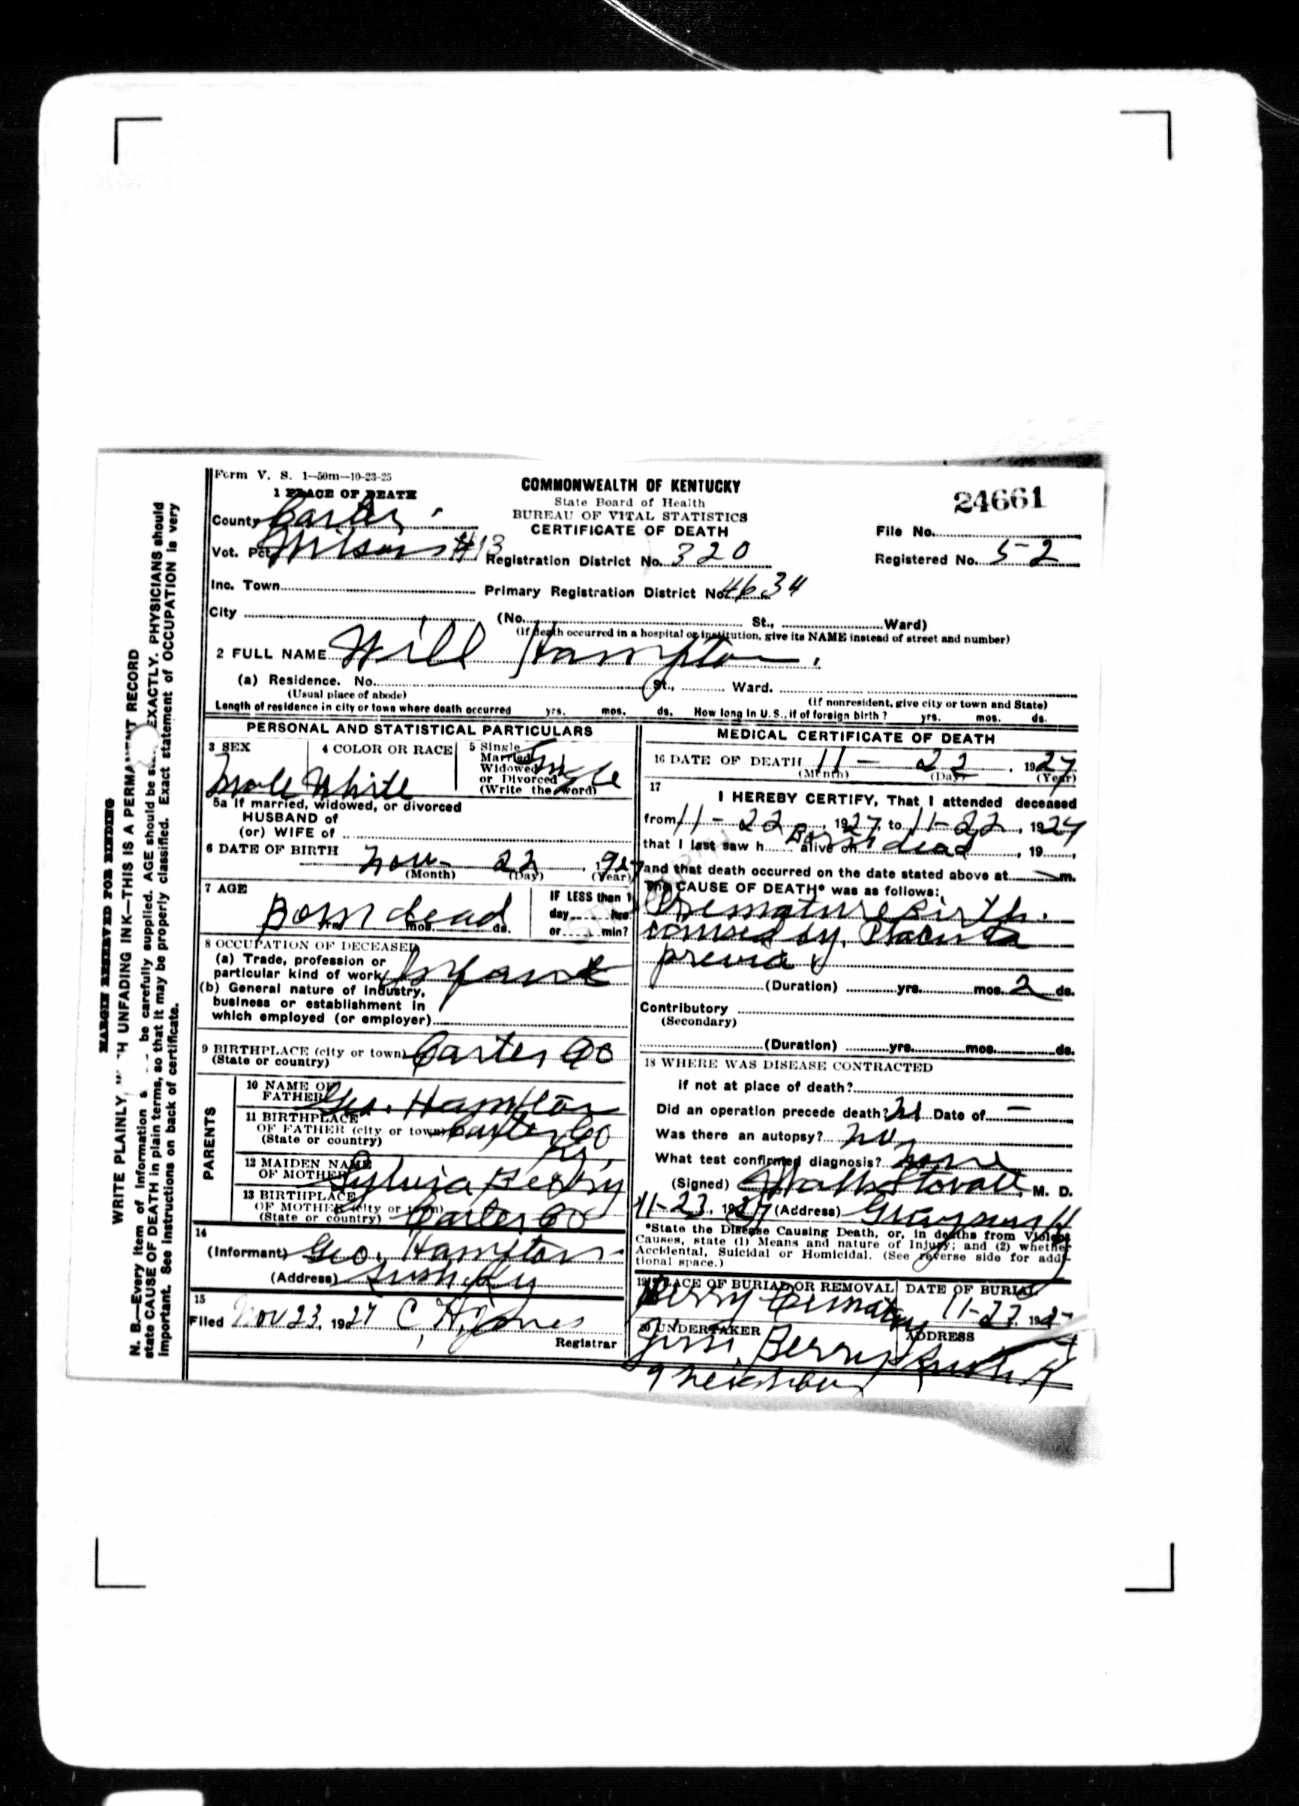 Form V. S. 1—50m—10-23-25
1 PLACE OF DEATH
County Carter.
Vot. Pct. Wilson #13
Inc. Town
City
COMMONWEALTH OF KENTUCKY
State Board of Health
BUREAU OF VITAL STATISTICS
CERTIFICATE OF DEATH
Registration District No. 320
Primary Registration District No. 4634
24661
File No.
Registered No. 52
(No. St., Ward)
(If death occurred in a hospital or institution, give its NAME instead of street and number)
2 FULL NAME Will Hampton.
(a) Residence. No. St., Ward.
(Usual place of abode) (If nonresident, give city or town and State)
Length of residence in city or town where death occurred yrs. mos. ds. How long in U. S., if of foreign birth? yrs. mos. ds.
PERSONAL AND STATISTICAL PARTICULARS
3 SEX
Male
4 COLOR OR RACE
White
5 Single
Married
Widowed
or Divorced
(Write the word)
Single
5a If married, widowed, or divorced
HUSBAND of
(or) WIFE of
6 DATE OF BIRTH Nov- 22, 1927
(Month) (Day) (Year)
7 AGE
Born dead
yrs. mos. ds.
IF LESS than 1
day, hrs.
or min?
8 OCCUPATION OF DECEASED
(a) Trade, profession or
particular kind of work Infant
(b) General nature of Industry,
business or establishment in
which employed (or employer)
9 BIRTHPLACE (city or town) Carter Co
(State or country)
PARENTS
10 NAME OF
FATHER Geo. Hampton
11 BIRTHPLACE
OF FATHER (city or town) Carter Co
(State or country) Ky.
12 MAIDEN NAME
OF MOTHER Sylvia Berry
13 BIRTHPLACE
OF MOTHER (city or town)
(State or country) Carter Co
14
(Informant) Geo. Hampton
(Address) Rush Ky
15
Filed Nov 23, 1927 C, H, Jones
Registrar
MEDICAL CERTIFICATE OF DEATH
16 DATE OF DEATH 11 — 22, 1927
(Month) (Day) (Year)
17
I HEREBY CERTIFY, That I attended deceased
from 11 - 22, 1927, to 11-22, 1927
that I last saw h alive on Born dead, 19
and that death occurred on the date stated above at m.
The CAUSE OF DEATH* was as follows:
Premature Birth.
caused by. Placenta
previa
(Duration) yrs. mos. 2 ds.
Contributory
(Secondary)
(Duration) yrs. mos. ds.
18 WHERE WAS DISEASE CONTRACTED
if not at place of death?
Did an operation precede death? Date of —
Was there an autopsy? no
What test confirmed diagnosis? none
(Signed) Stovall, M. D.
11-23, 1927 (Address) Grayson Ky
*State the Disease Causing Death, or, in deaths from Violent
Causes, state (1) Means and nature of Injury; and (2) whether
Accidental, Suicidal or Homicidal. (See reverse side for addi-
tional space.)
19 PLACE OF BURIAL OR REMOVAL
Berry Cematary
DATE OF BURIAL
11-23, 1927
20 UNDERTAKER
Jim Berry
ADDRESS
Rush Ky
neighbor
MARGIN RESERVED FOR BINDING
WRITE PLAINLY, H UNFADING INK—THIS IS A PERMANENT RECORD
N. B.—Every item of Information be carefully supplied. AGE should be EXACTLY. PHYSICIANS should
state CAUSE OF DEATH in plain terms, so that it may be properly classified. Exact statement of OCCUPATION is very
important. See instructions on back of certificate.